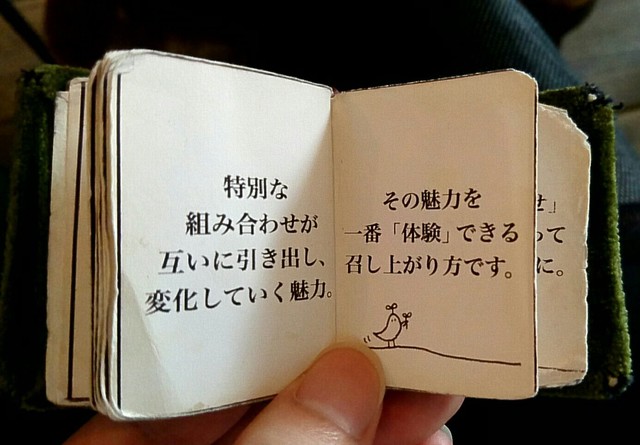 特別な
組み合わせが
互いに引き出し、
変化していく魅力。
その魅力を
一番「体験」できる
召し上がり方です。
せ」
って
に。